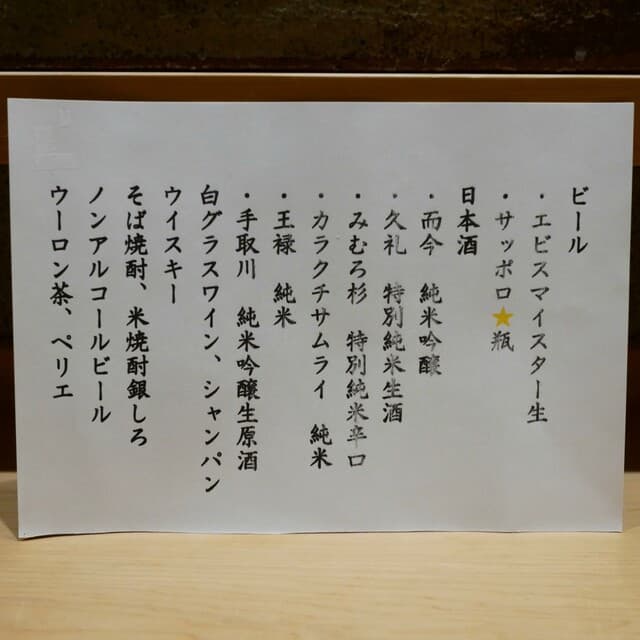 ビール
・エビスマイスター生
・サッポロ★瓶
日本酒
・而今　純米吟醸
・久礼　特別純米生酒
・みむろ杉　特別純米辛口
・カラクチサムライ　純米
・王禄　純米
・手取川　純米吟醸生原酒
白グラスワイン、シャンパン
ウイスキー
そば焼酎、米焼酎銀しろ
ノンアルコールビール
ウーロン茶、ペリエ